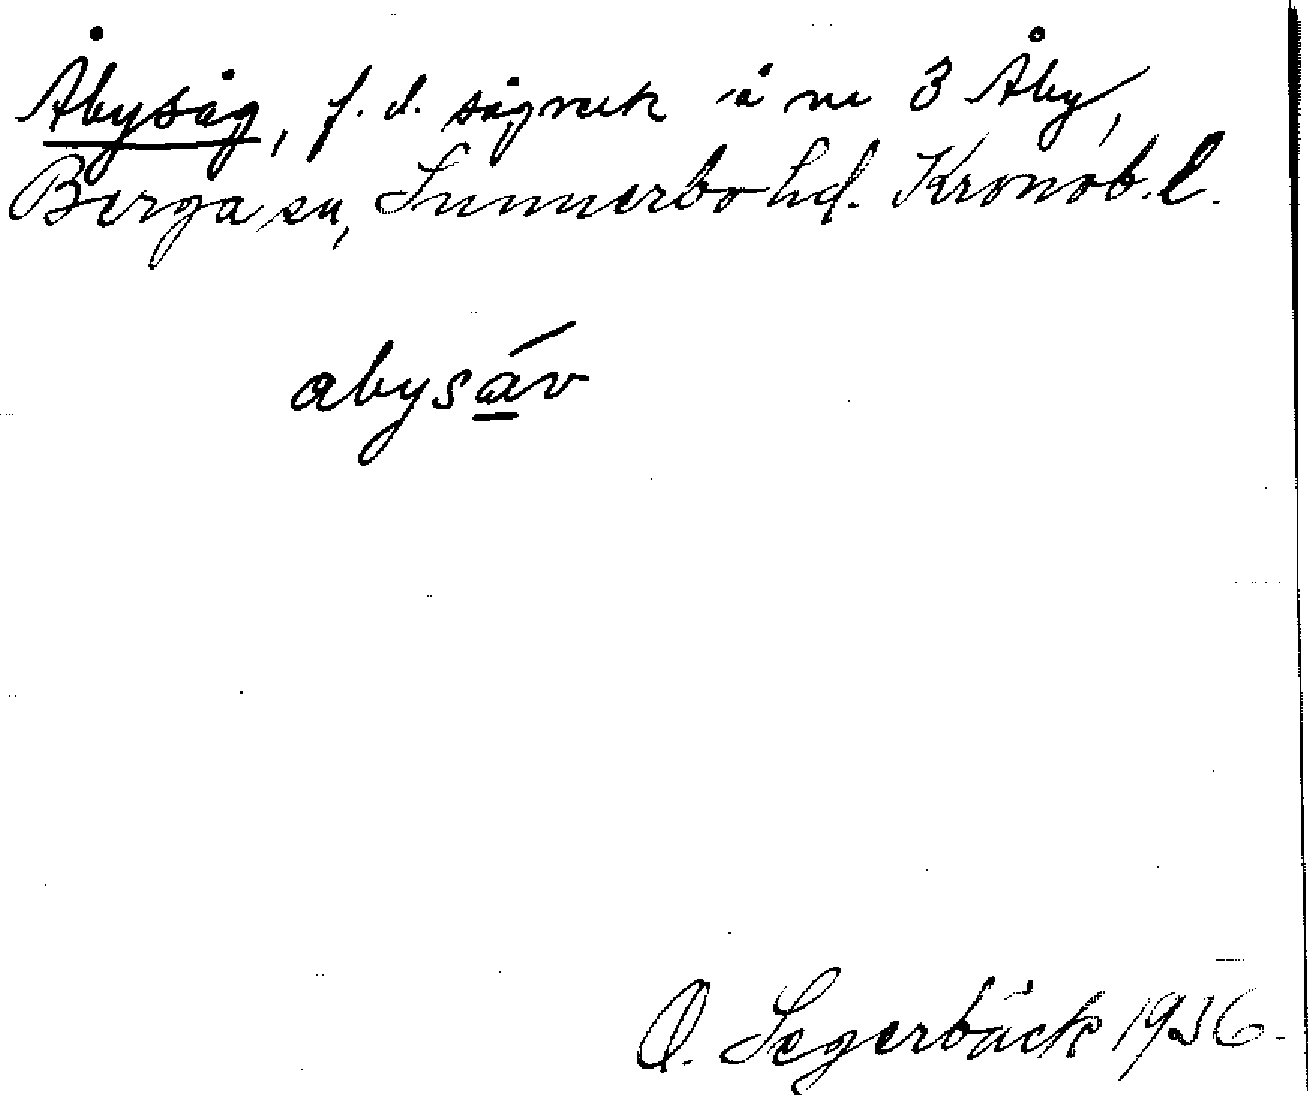 Åbysåg, f. d. sågverk å nr 3 Åby,
Berga sn, Sunnerbo hd. Kronob. l.
abysáv
O. Segerbäck 1936.